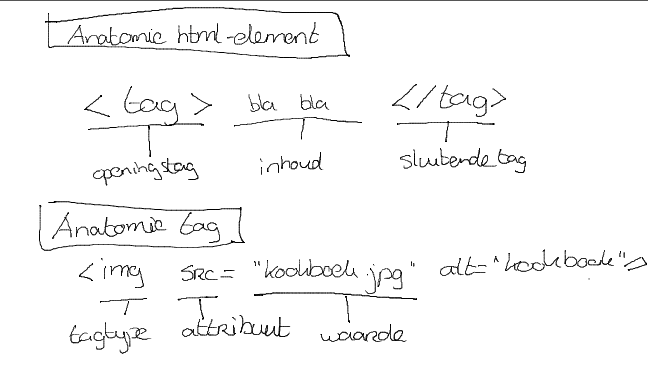 Anatomie html-element
<tag> bla bla </tag>
openingstag inhoud sluitende tag
Anatomie tag
<img src= "kookboek.jpg" alt="kookboek">
tagtype attribuut waarde